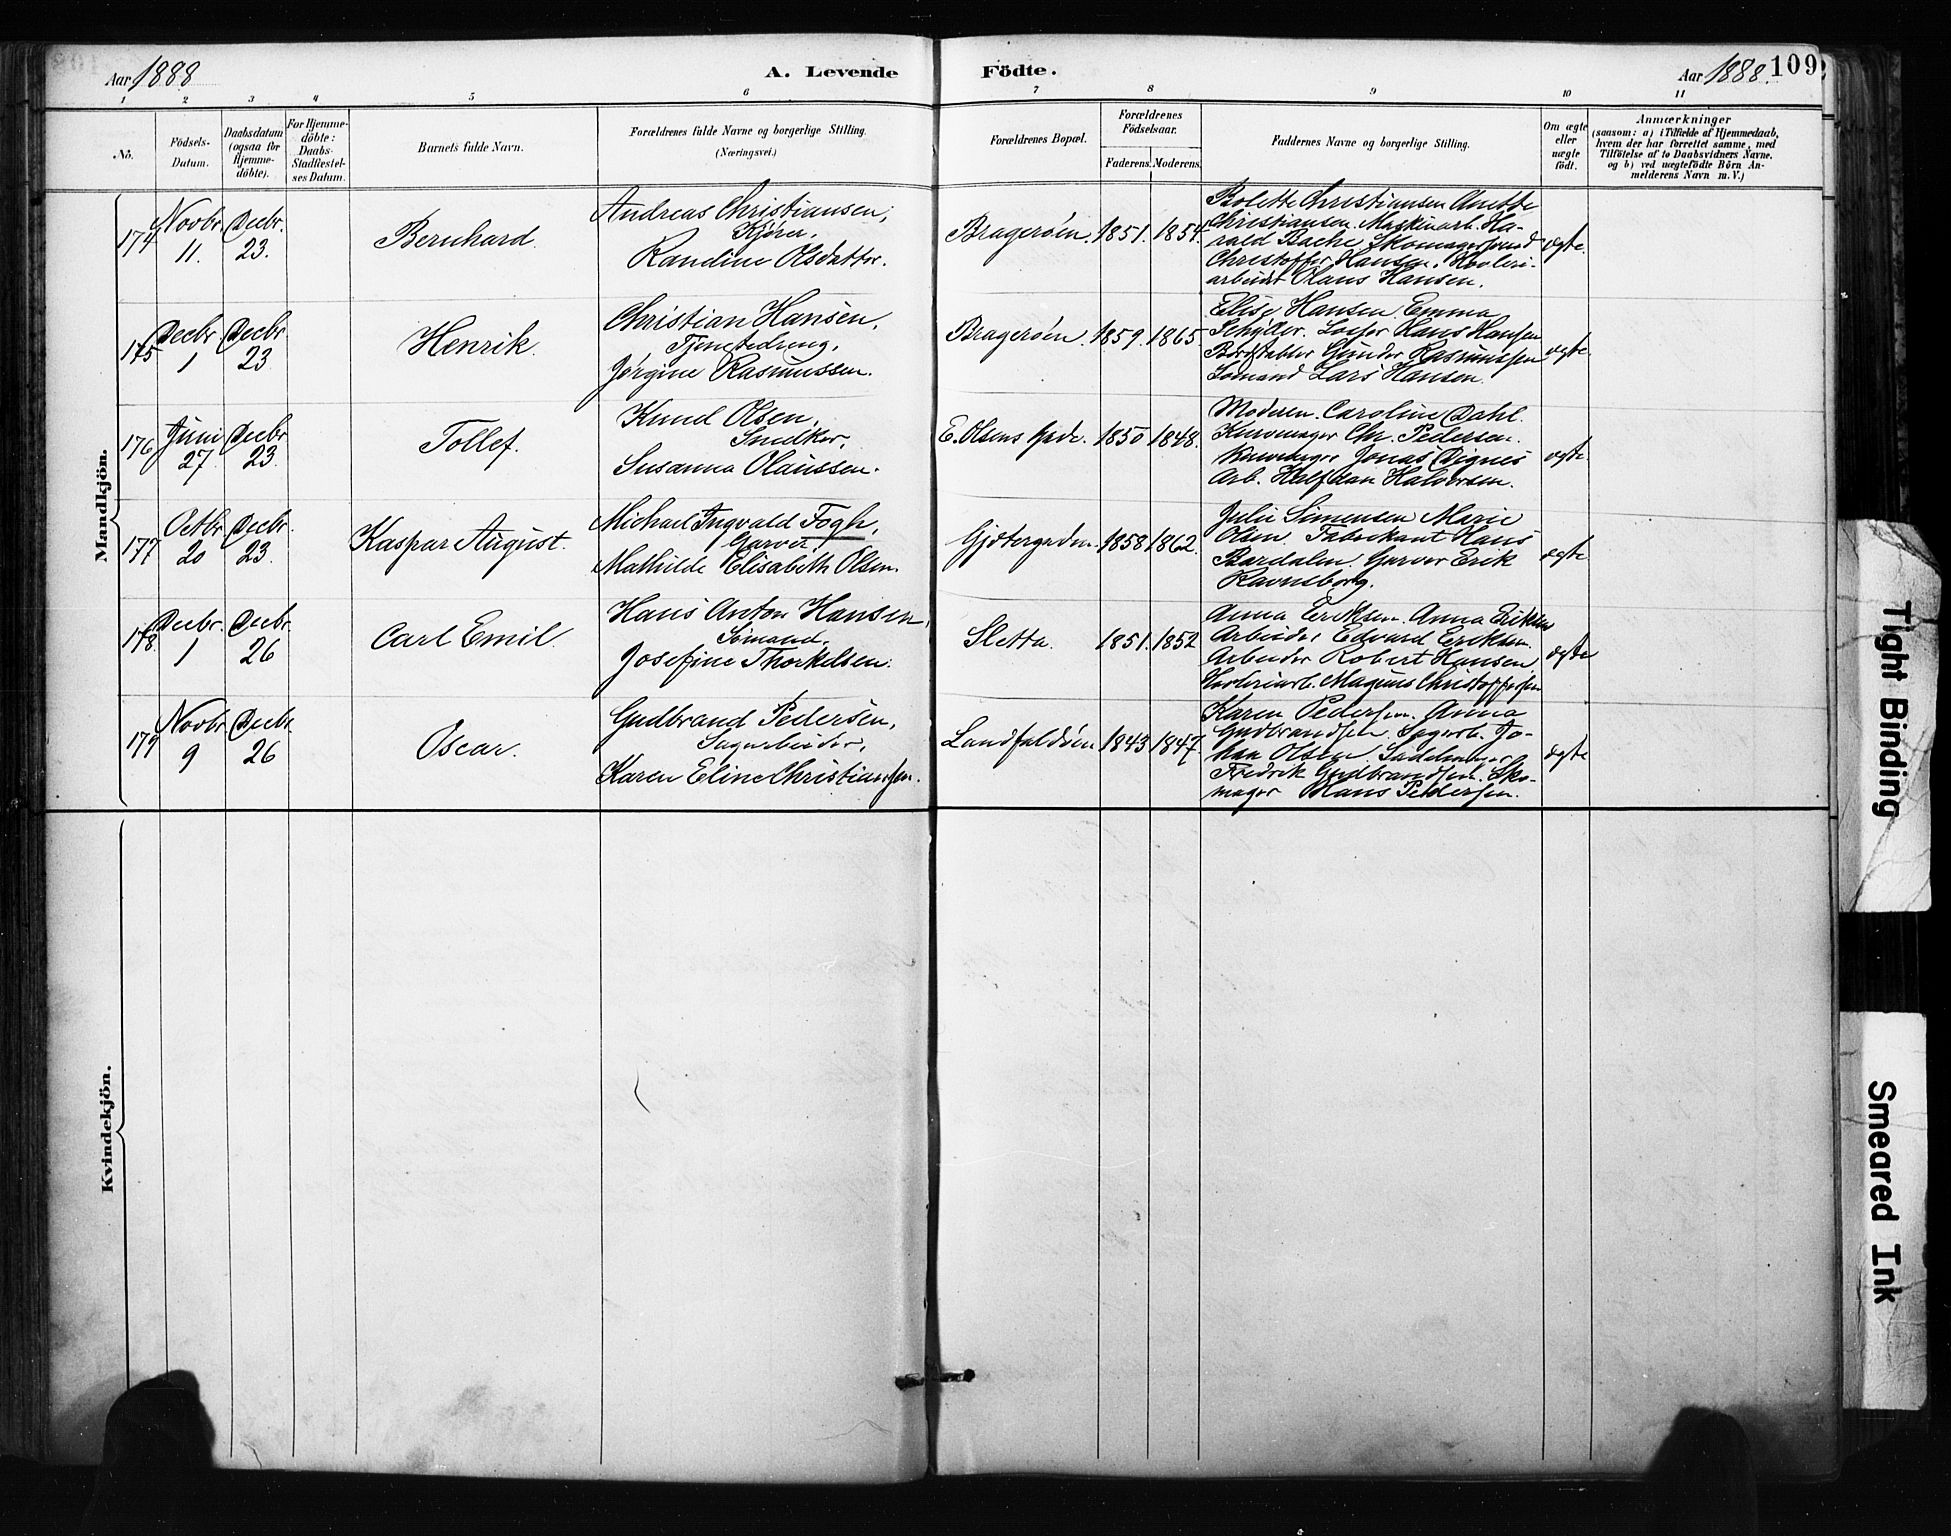 Aar 1888
A. Levende
Födte.
Aar 1888. 109
1 2 3 4 5 6 7 8 9 10 11
No.
Födsels-
Datum.
Daabsdatum
(ogsaa for
Hjemme-
döbte).
For Hjemme-
döbte:
Daabs-
Stadfæstel-
ses Datum.
Barnets fulde Navn.
Forældrenes fulde Navne og borgerlige Stilling.
(Næringsvei.)
Forældrenes Bopæl.
Forældrenes
Födselsaar.
Faderens. Moderens.
Faddernes Navne og borgerlige Stilling.
Om ægte
eller
uægte
födt.
Anmærkninger
(saasom: a) i Tilfælde af Hjemmedaab,
hvem der har forrettet samme, med
Tilföielse af to Daabsvidners Navne,
og b) ved uægtefödte Börn An-
melderens Navn m. V.)
Mandkjön.
174
Novbr.
11.
Decbr.
23.
Bernhard.
Andreas Christiansen,
Kjører,
Randine Olsdatter.
Bragerøen. 1851. 1854.
Bolette Christiansen Anette
Christiansen. Maskinarb. Ha-
rald Bache, Skomagersvend
Christoffer Hansen, Høvleri-
arbeider Olaus Hansen.
ægte.
175
Decbr.
1
Decbr.
23
Henrik.
Christian Hansen,
Jørgine Rasmussen.
Bragerøen. 1859. 1865
Elise Hansen. Emma
Hans Hansen
Gunder Rasmussen
Sømand Lars Hansen.
ægte.
176
Juni
27
Decbr.
23.
Tollef.
Knud Olsen,
Snedker,
Susanna Olaussen.
E. Olsens Gade. 1850 1848.
Moderen. Caroline Dahl.
Kurvmager Chr. Pedersen.
Jonas Dignes
Arb. Halfdan Halvorsen.
ægte.
177
Octbr.
20
Decbr.
23.
Kaspar August.
Michael Ingvald Fogh,
Garver,
Mathilde Elisabeth Olsen.
Gjetergaden 1858 1862.
Julie Simensen Marie
Olsen. Fabrikant Hans
Bardalen. Garver Erik
Ravnsborg.
ægte
178.
Decbr.
1
Decbr.
26
Carl Emil.
Hans Anton Hansen,
Sømand,
Josefine Thorkelsen.
Sletta. 1851. 1852
Anna Eriksen. Anna Eriksen
Arbeider Edvard Eriksen.
Arbeider Robert Hansen
Høvleriarb. Magnus Christoffersen
ægte
179
Novbr.
9
Decbr.
26
Oscar.
Gudbrand Pedersen,
Sagarbeider,
Karen Eline Christiansen.
Landfaldøen 1843 1847
Karen Pedersen. Anna
Gudbrandsen. Sagarb. Jo-
han Olsen. Sadelmager
Fredrik Gudbrandsen. Sko-
mager Hans Pedersen.
ægte
Kvindekjön.
Tight Binding
Smeared Ink